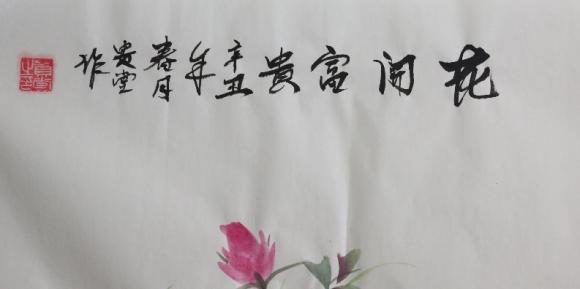 花開富貴
辛丑
年
春月
貴堂
作